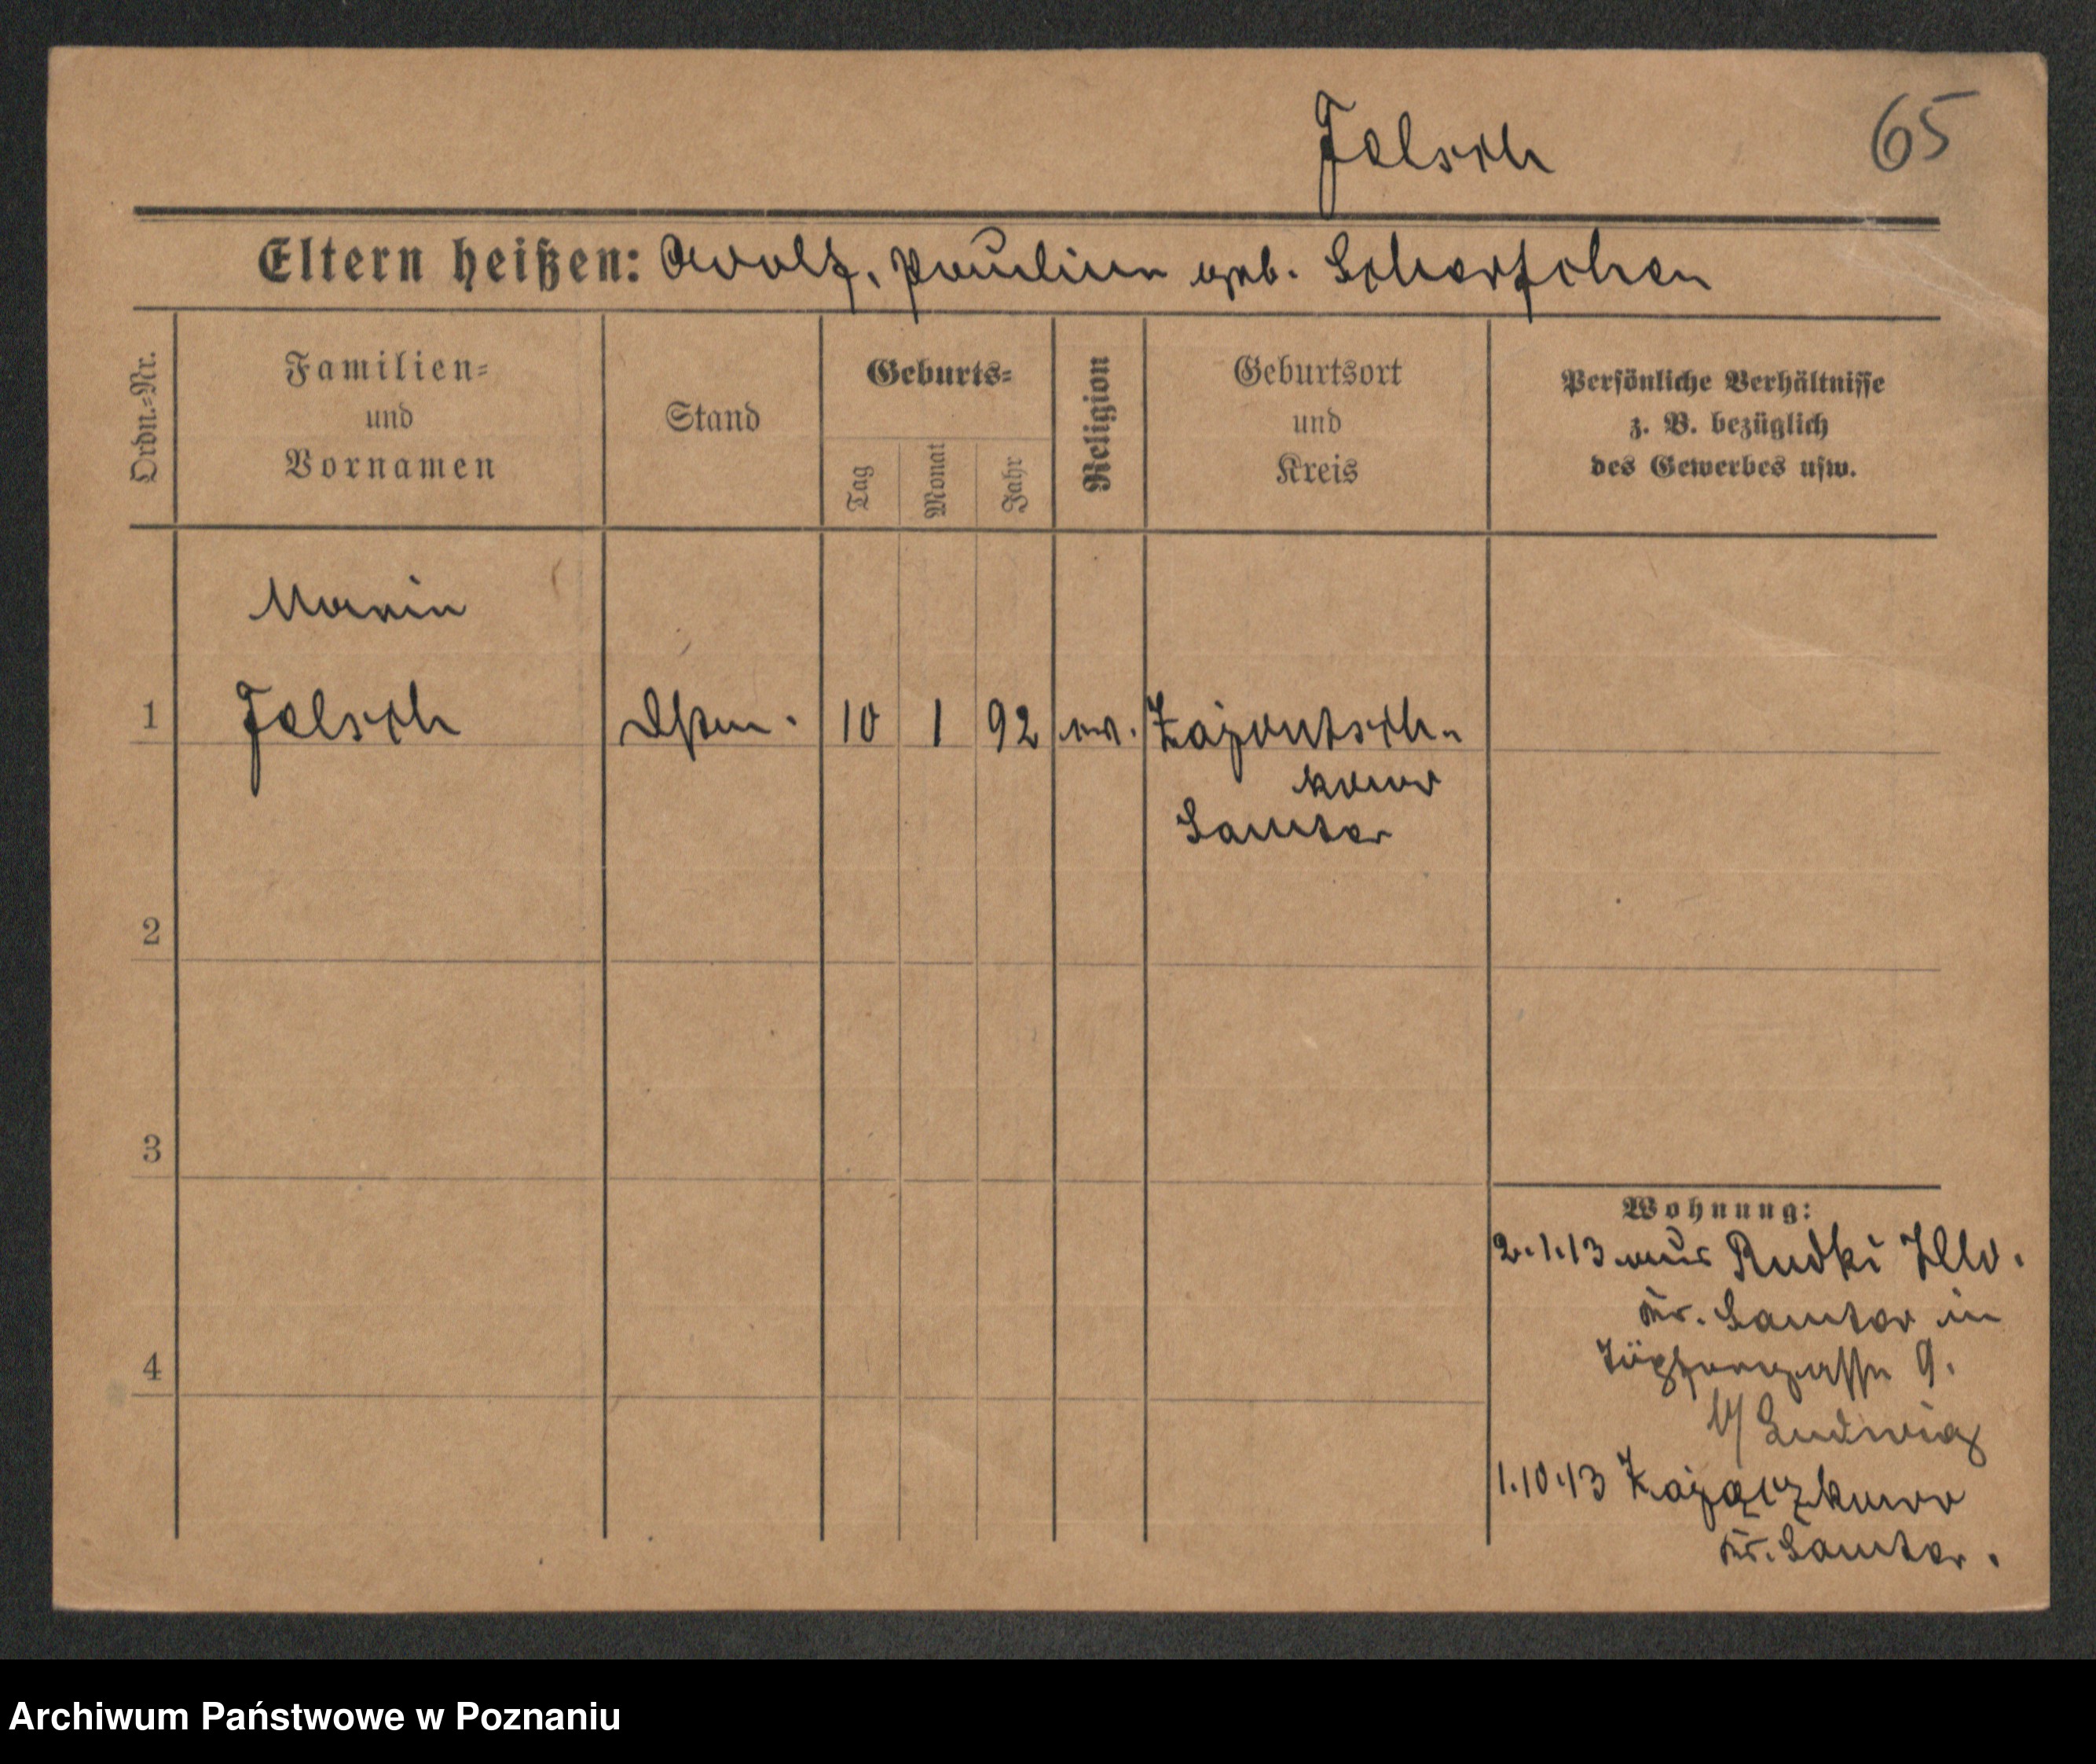 Jolsch 65
Eltern heißen: Adolf, Pauline geb. Scherfchen
Ordn.-Nr.
Familien-
und
Vornamen
Stand
Geburts-
Tag
Monat
Jahr
Religion
Geburtsort
und
Kreis
Persönliche Verhältnisse
z. B. bezüglich
des Gewerbes usw.
Marie
1 Jolsch 10 1 92 ev. Zajontsch-
kowo
Samter
2
3
4
Wohnung:
2.1.13 aus Rudki
Kr. Samter in
Töpfergasse 9.
b/ Ludwig
1.10.13 Zajączkowo
Kr. Samter.
Archiwum Państwowe w Poznaniu